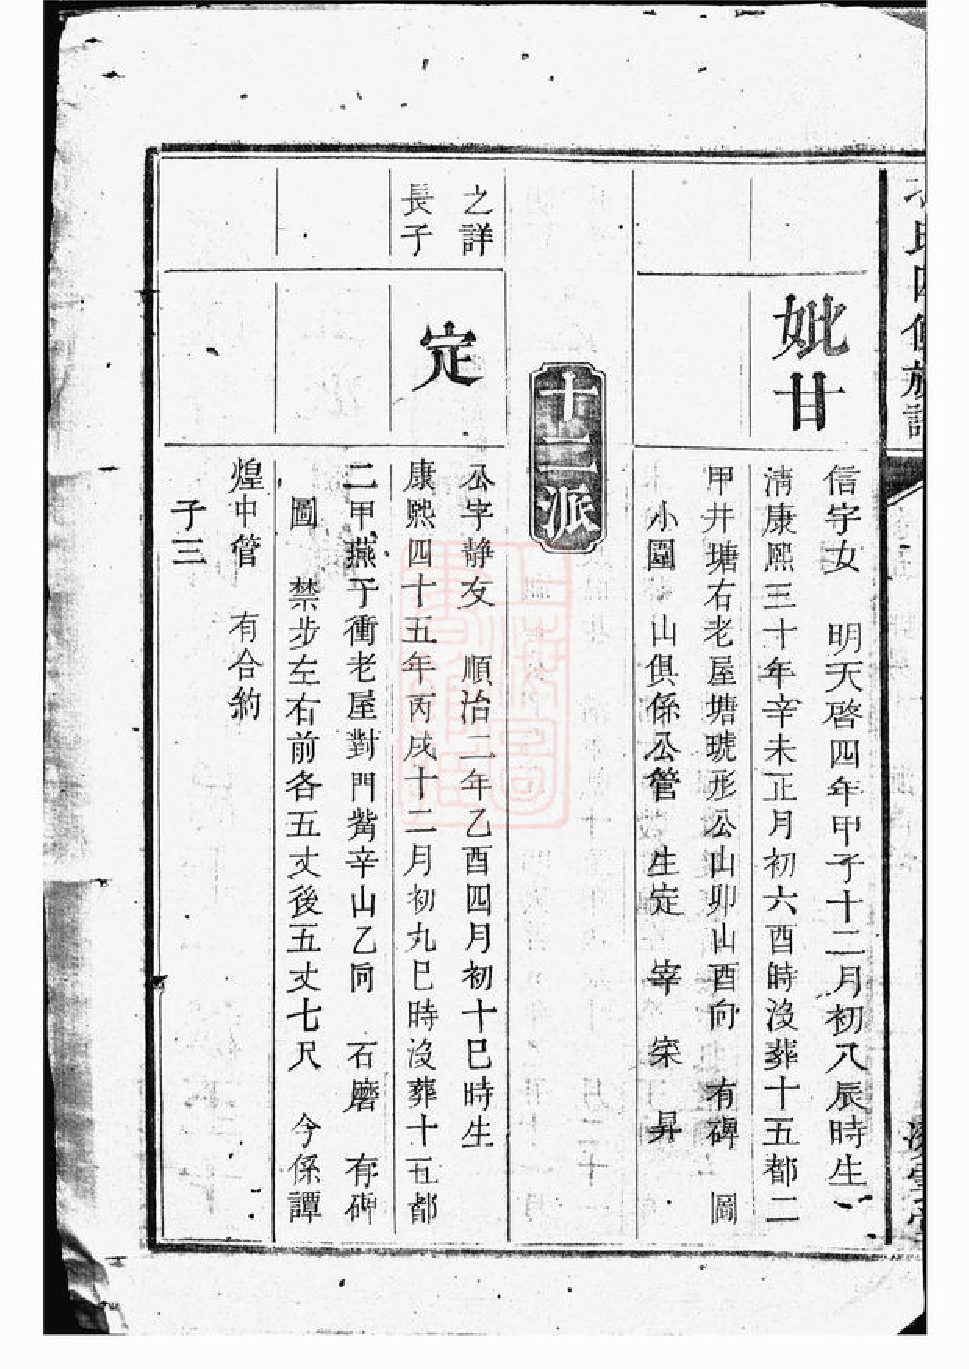 氏四修族譜
妣甘
信字女　明天啓四年甲子十二月初八辰時生
清康熙三十年辛未正月初六酉時沒葬十五都二
甲井塘右老屋塘琥形公山卯山酉向　有碑　圖
小圍　山俱係公管　生定　宰　寀　昇
十二派
之詳
長子
定
公字靜友　順治二年乙酉四月初十巳時生
康熙四十五年丙戌十二月初九巳時沒葬十五都
二甲燕子衝老屋對門觜辛山乙向　石磨　有碑
圖　禁步左右前各五丈後五丈七尺　今係譚
煌中管　有合約
子三